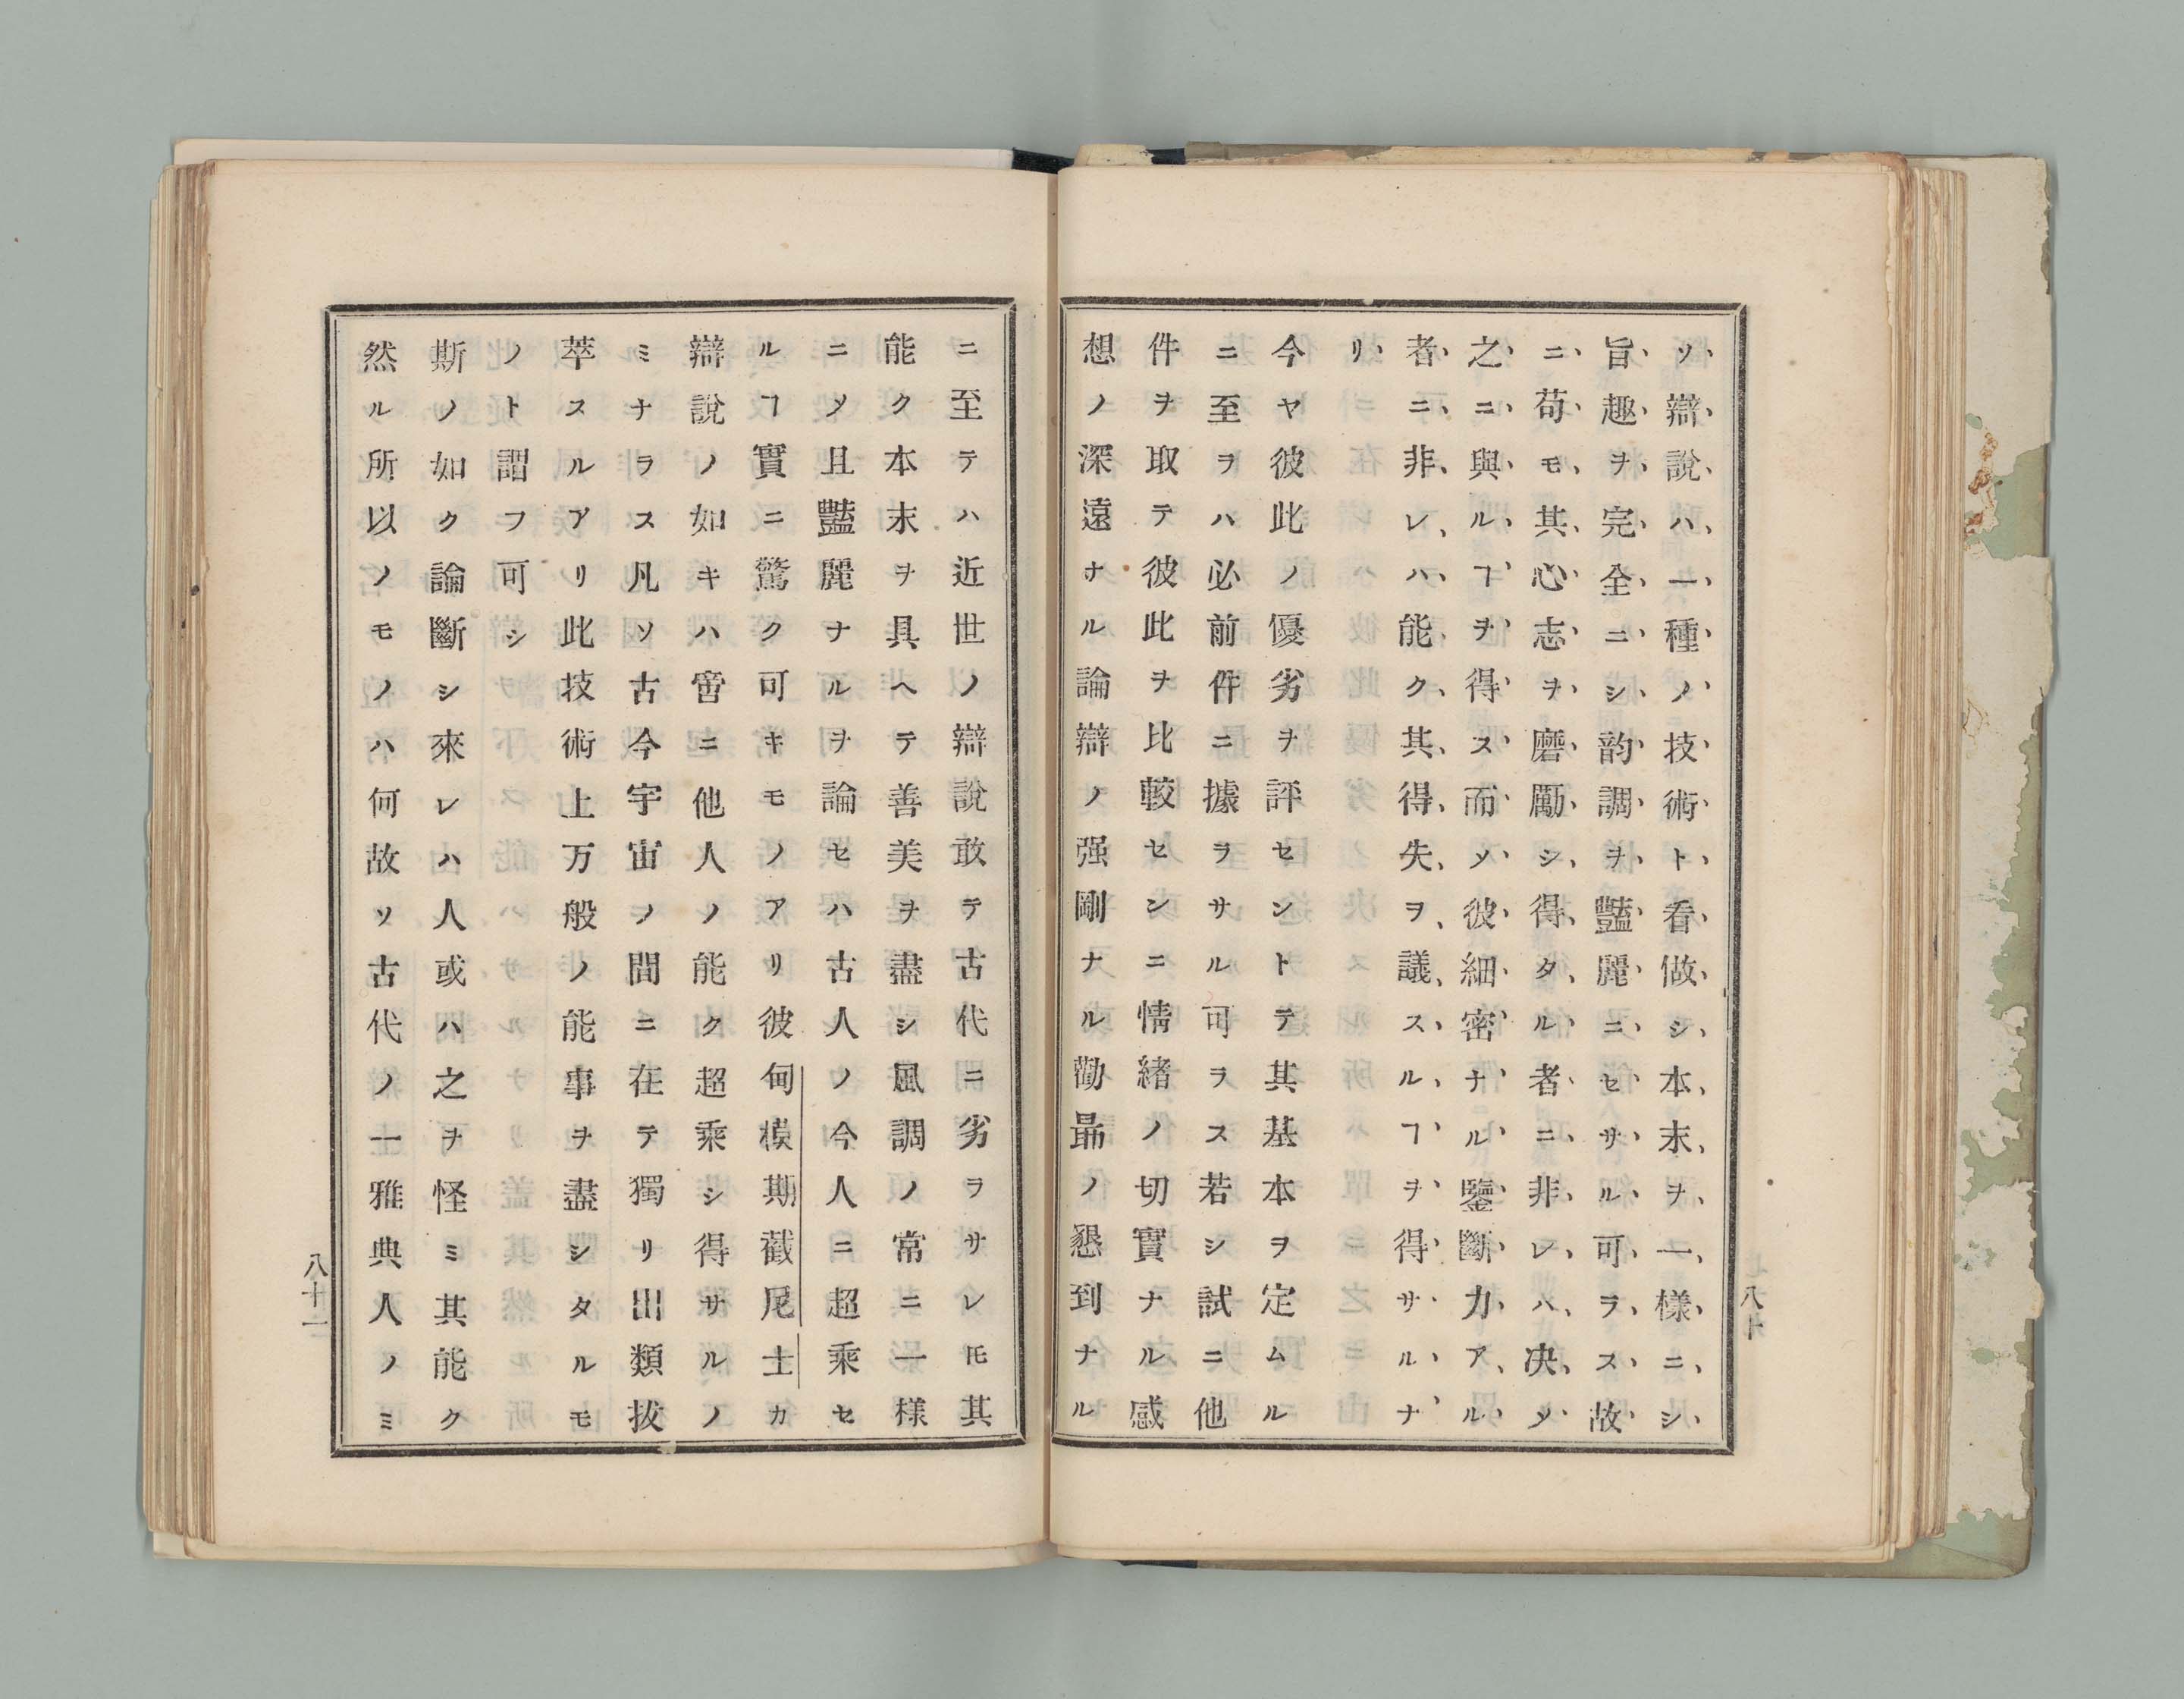 ソ辯說ハ一種ノ技術ト看做シ本末ヲ一樣ニシ
旨趣ヲ完全ニシ韵調ヲ豔麗ニセサル可ラス故
ニ苟モ其心志ヲ磨勵シ得タル者ニ非レハ决メ
之ニ與ルヿヲ得ス而メ彼細密ナル鑒斷力アル
者ニ非レハ能ク其得失ヲ議スルヿヲ得サルナ
リ
今ヤ彼此ノ優劣ヲ評センドテ其基本ヲ定ムル
ニ至ラハ必前件ニ據ラサル可ラス若シ試ニ他
件ヲ取テ彼此ヲ比較センニ情緒ノ切實ナル感
想ノ深遠ナル論辯ノ强剛ナル勸勗ノ懇到ナル
八十
ニ至テハ近世ノ辯說敢テ古代ニ劣ラサレ𪜈其
能ク本末ヲ具ヘテ善美ヲ盡シ風調ノ常ニ一樣
ニメ且豔麗ナルヲ論セハ古人ノ今人ニ超乘セ
ルヿ實ニ驚ク可キモノアリ彼甸模期截尼士カ
辯說ノ如キハ啻ニ他人ノ能ク超乘シ得サルノ
ミナラス凡ソ古今宇宙ノ間ニ在テ獨リ出類拔
萃スルアリ此技術上万般ノ能事ヲ盡シタルモ
ノト謂フ可シ
斯ノ如ク論斷シ來レハ人或ハ之ヲ怪ミ其能ク
然ル所以ノモノハ何故ソ古代ノ一雅典人ノミ
八十一